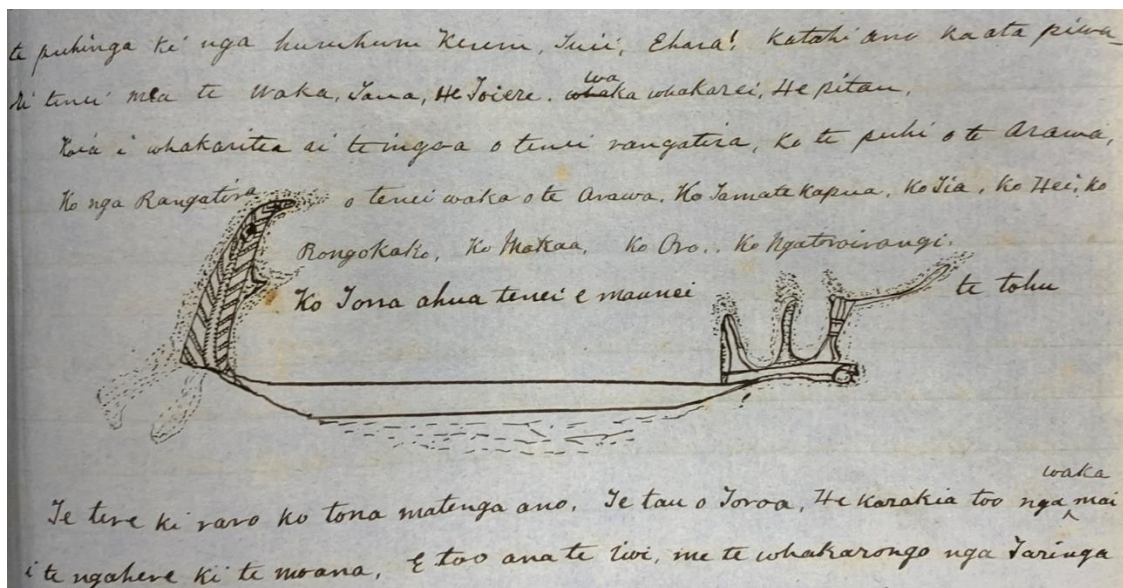 te puhinga ki nga huruhuru Kereru, Tuii, Ehara! Katahi ano ka ata piwa-
ri tenei mea te Waka, Taua, He Toiere. waka whakarei, He pitau,
Koia i whakaritea ai te ingoa o tenei rangatira, ko te puhi o te Arawa,
Ko nga Rangatira o tenei waka o te Arawa. Ko Tamatekapua, Ko Tia, Ko Hei, ko
Rongokako, Ko Makaa, Ko Oro,. Ko Ngatoroirangi.
Ko Tona ahua tenei e maunei te tohu
Te tere ki raro ko tona matenga ano, Te tau o Toroa, He karakia too nga waka mai
i te ngahere ki te moana, E too ana te iwi, me te whakarongo nga Taringa